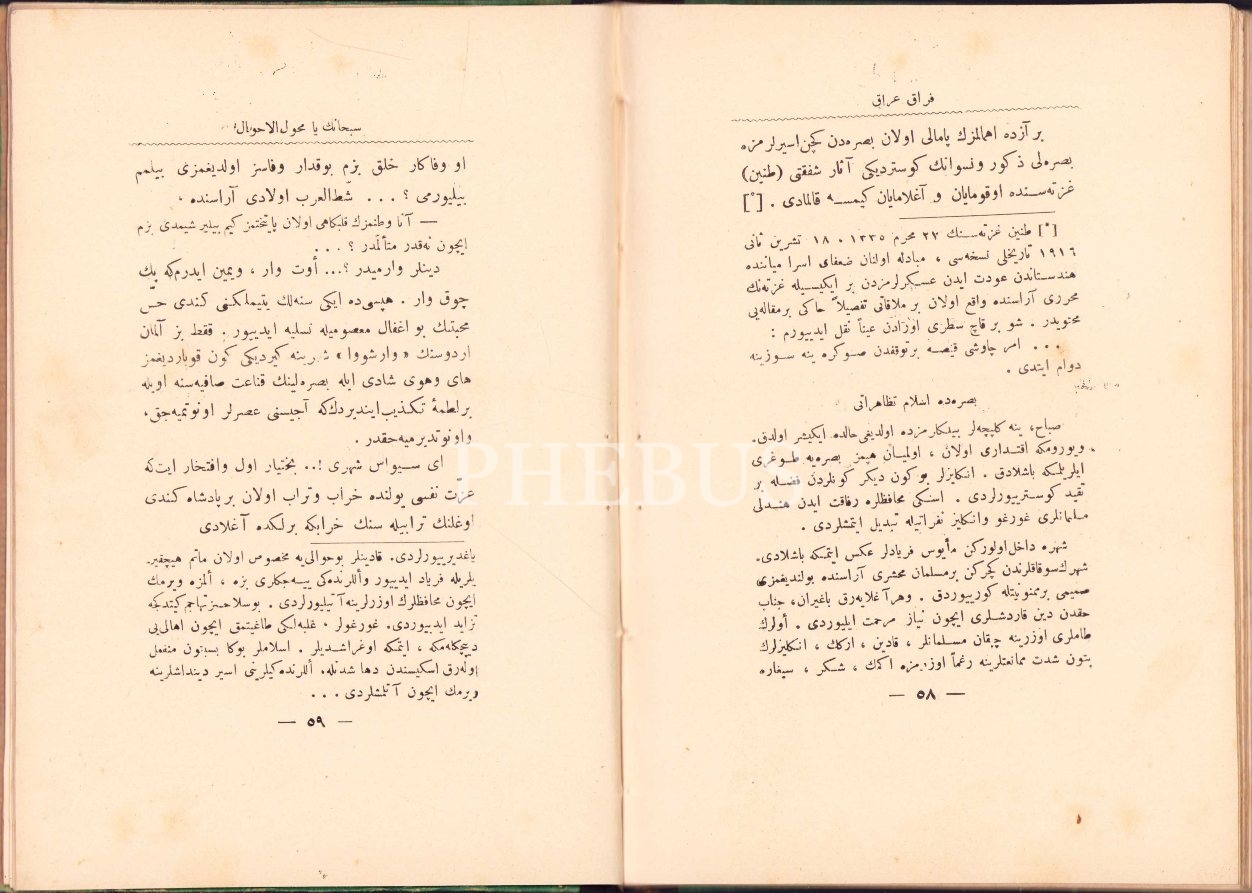 فراق عراق
بر آزده اهمالمزك پامالی اولان بصره‌دن كچن اسیرلرمزه
بصره‌لی ذكور ونسوانك كوستردیكی آثار شفقتی (طنین)
غزته‌سنده اوقومایان و آغلامایان كیمسه قالمادی . [*]
[*] طنین غزته‌سنك ٢٣ محرم ١٣٣٥ ، ١٨ تشرین ثانی
١٩١٦ تاریخلی نسخه‌سی ، مبادله اولنان ضعفای اسرا میاننده
هندستاندن عودت ایدن عسكرلرمزدن بر ایكیسیله غزته‌نك
محرری آراسنده واقع اولان بر ملاقاتی تفصیلاً حاكی بر مقاله‌یی
محتویدر . شو بر قاچ سطری اوزادن عیناً نقل ایدییورم :
... امر چاوشی قیصه بر توقفدن صوكره ینه سوزینه
دوام ایتدی .
بصره‌ده اسلام تظاهراتی
صباح، ینه كلپچه‌لر بیلكلرمزده اولدیغی حالده ایكیشر اولدق.
ویورومكه اقتداری اولان ، اولمیان هپمز بصره‌یه طوغری
ایلریلمكه باشلادق . انكلیزلر بو كون دیكر كونلردن فضله بر
تقید كوسترییورلردی . اسكی محافظلره رفاقت ایدن هندلی
مسلمانلری غورغو وانكلیز نفراتیله تبدیل ایتمشلردی .
شهره داخل اولوركن مأیوس فریادلر عكس ایتمكه باشلادی.
شهرك سوقاقلرندن كچركن بر مسلمان محشری آراسنده بولندیغمزی
صمیمی بر ممنونیتله كورییوردق . وهر آغلایه‌رق باغیران، جناب
حقدن دین قردشلری ایچون نیاز مرحمت ایلیوردی . أولرك
طاملری اوزرینه چیقان مسلمانلر ، قادین ، اركك ، انكلیزلرك
بتون شدت ممانعتلرینه رغماً اوزریمزه اكمك ، شكر ، سیغاره
— ٥٨ —
سبحانك یا محول الاحوال!
او وفاكار خلق بزم بوقدار وفاسز اولدیغمزی بیلمم
بیلیورمی ؟ ... شط‌العرب اولادی آراسنده ،
— آنا وطنمزك قلبكاهی اولان پایتختمز كیم بیلیر شیمدی بزم
ایچون نه‌قدر متألمدر ؟ ...
دینلر وارمیدر ؟... أوت وار ، ویمین ایدرم‌كه پك
چوق وار . هپسی‌ده ایكی سنه‌لك یتیملكنی كندی حس
محبتنك بو اغفال معصومیله تسلیه ایدییور . فقط بز آلمان
اردوسنك «وارشووا» شهرینه كیردیكی كون قوپاردیغمز
های وهوی شادی ایله بصره‌لینك قناعت صافیه‌سنه اویله
بر لطمهٔ تكذیب ایندیردك‌كه آجیسنی عصرلر اونوتمیه‌جق،
واونوتدیرمیه‌جقدر.
ای سیواس شهری !.. بختیار اول وافتخار ایت‌كه
عزت نفسی یولنده خراب وتراب اولان بر پادشاه كندی
اوغلنك ترابیله سنك خرابكه برلكده آغلادی
یاغدیرییورلردی. قادینلر بوحوالی‌یه مخصوص اولان ماتم هیچقیر-
یلریله فریاد ایدییور وأللرنده‌كی ییه‌جكلری بزه ، ألمزه ویرمك
ایچون محافظلرك اوزرلرینه آتیلیورلردی . بو سلاحسز تهاجم كیتدكجه
تزاید ایدییوردی. غورغولر ، غلبه‌لكی طاغیتمق ایچون اهالی‌یی
دیپچكله‌مكه ، ایتمكه اوغراشدیلر . اسلاملر بوكا بسبتون منفعل
اوله‌رق اسكیسندن دها شدتله. أللرنده‌كیلرینی اسیر دینداشلرینه
ویرمك ایچون آتلمشلردی ...
— ٥٩ —
PHEBUS